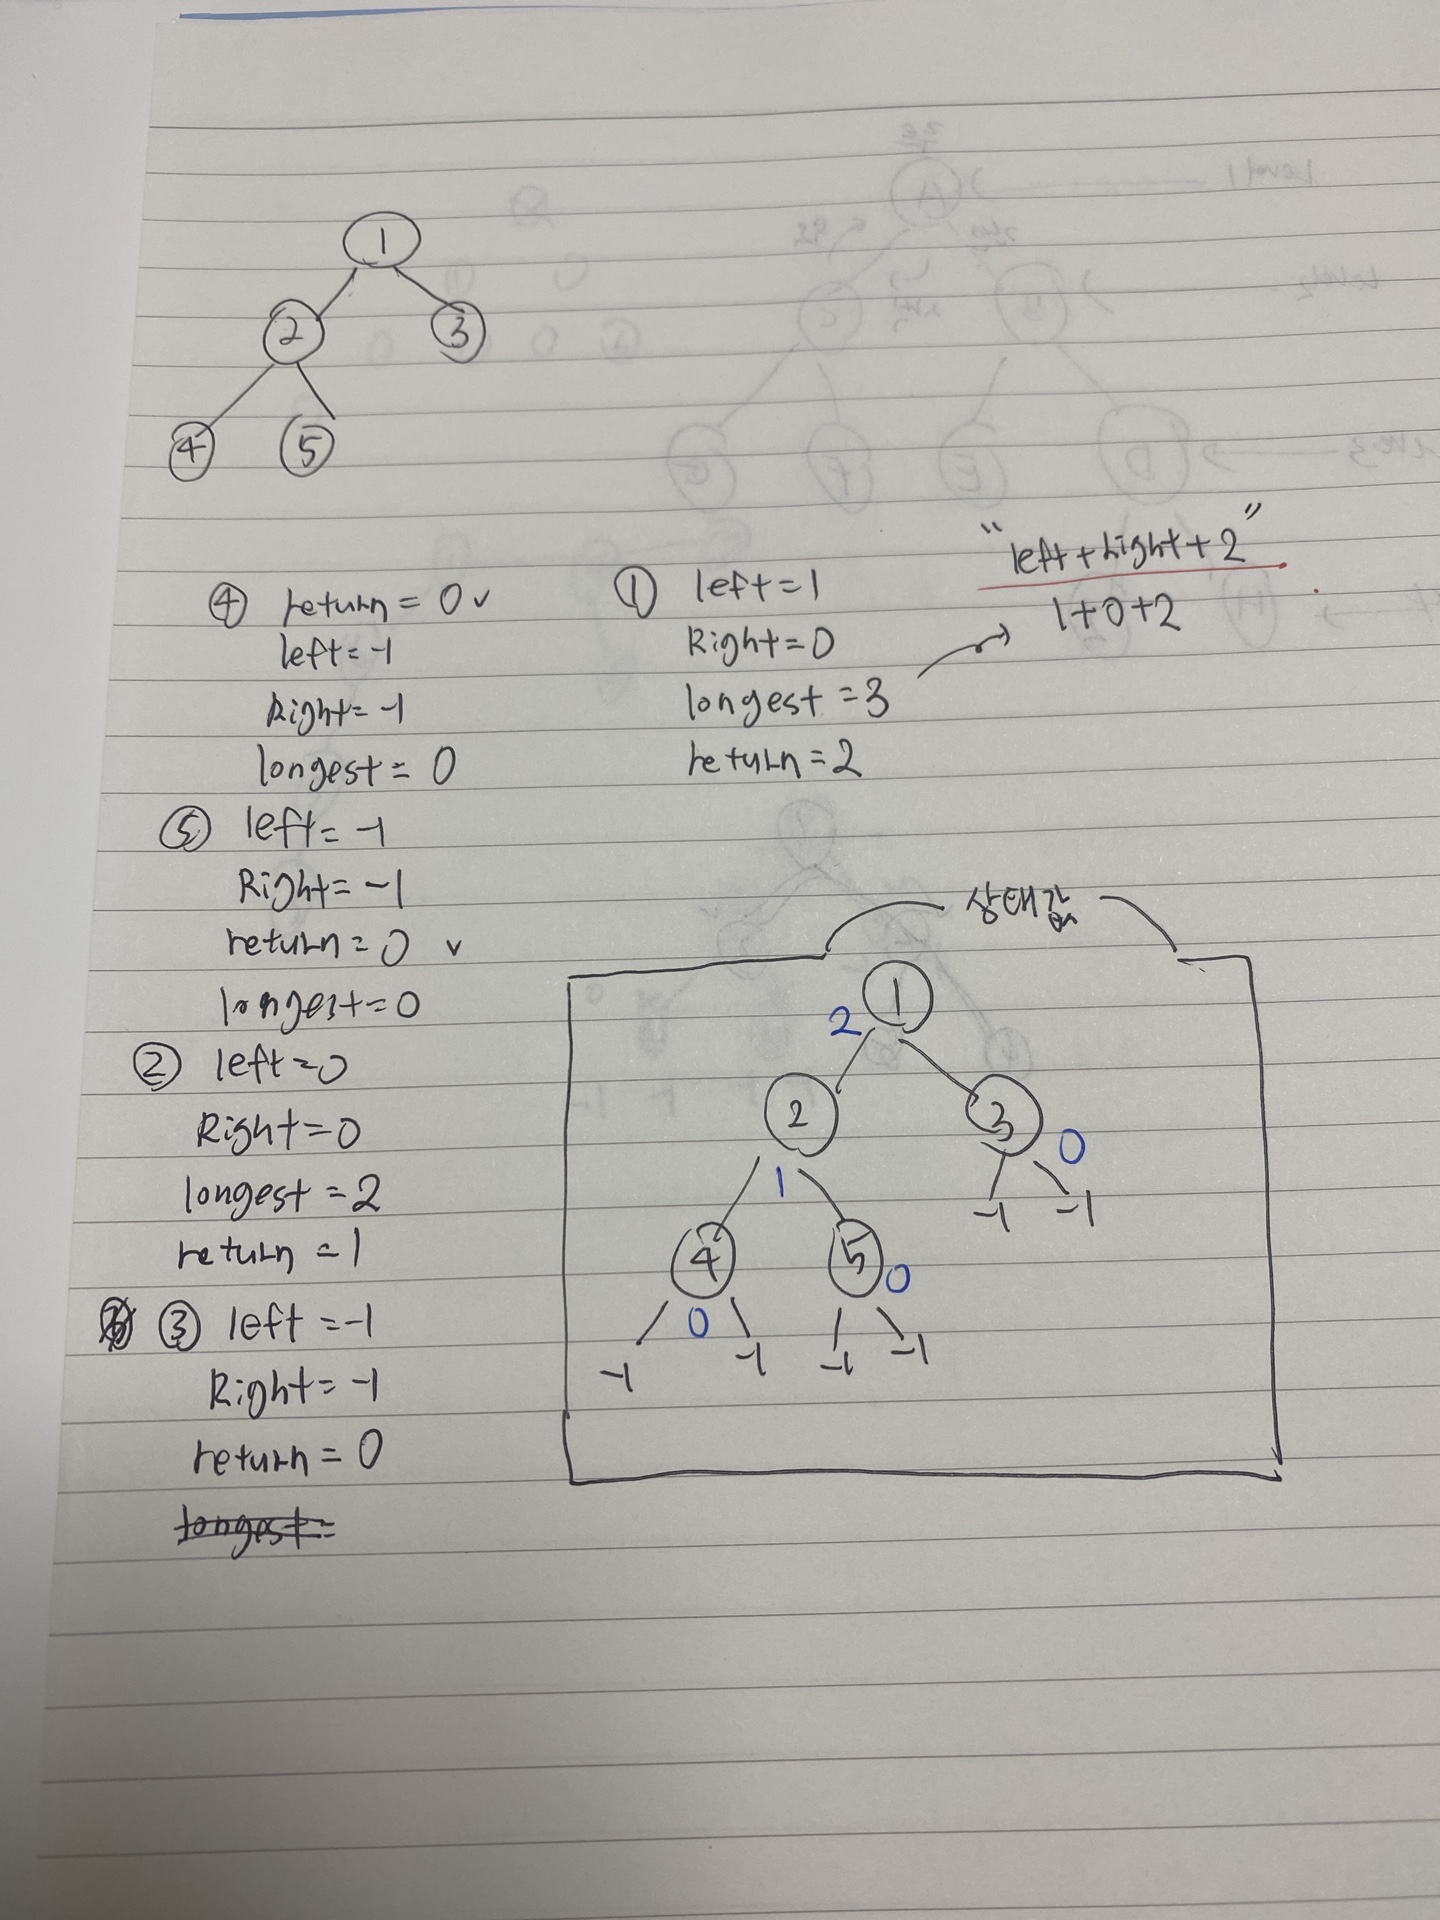 1
2 3
4 5
④ return = 0 ✓
left = -1
Right = -1
longest = 0
⑤ left = -1
Right = -1
return = 0 ✓
longest = 0
② left = 0
Right = 0
longest = 2
return = 1
③ left = -1
Right = -1
return = 0
longest =
① left = 1
Right = 0
longest = 3
return = 2
"left + right + 2"
1 + 0 + 2
상태값
1
2
2 3
0
1
-1 -1
4 5
0
0
-1 -1 -1 -1